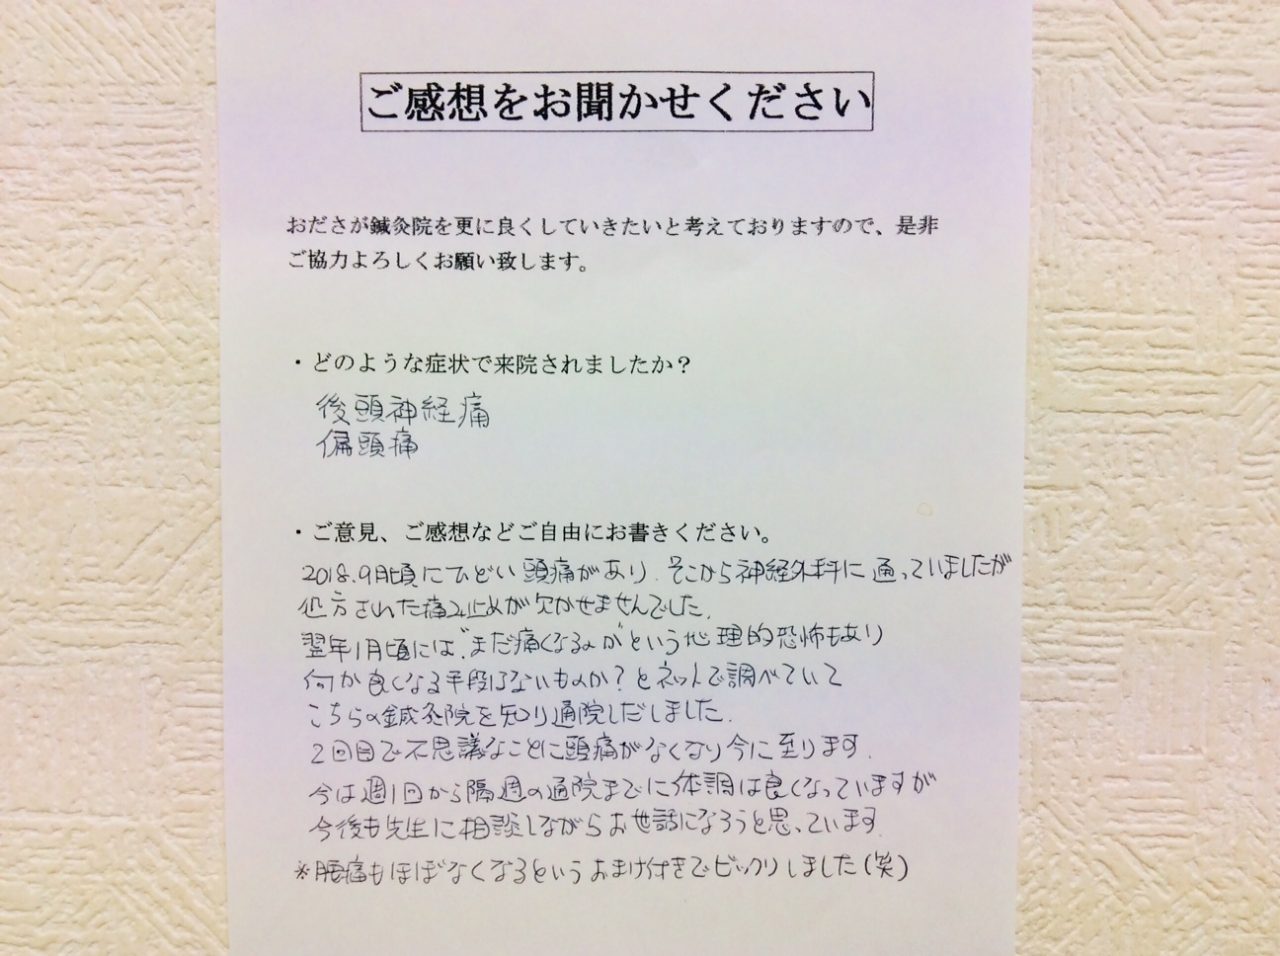 ご感想をお聞かせください
おださが鍼灸院を更に良くしていきたいと考えておりますので、是非
ご協力よろしくお願い致します。
・どのような症状で来院されましたか？
後頭神経痛
偏頭痛
・ご意見、ご感想などご自由にお書きください。
2018.9月頃にひどい頭痛があり、そこから神経外科に通っていましたが
処方された痛み止めが欠かせませんでした。
翌年1月頃には、"まだ痛くなるかが"という心理的恐怖もあり
何か良くなる手段はないものか？とネットで調べていて
こちらの鍼灸院を知り通院しだしました。
2回目で不思議なことに頭痛がなくなり今に至ります。
今は週1回から隔週の通院までに体調は良くなっていますが
今後も先生に相談しながらお世話になろうと思っています。
※腰痛もほぼなくなるというおまけ付きでビックリしました(笑)